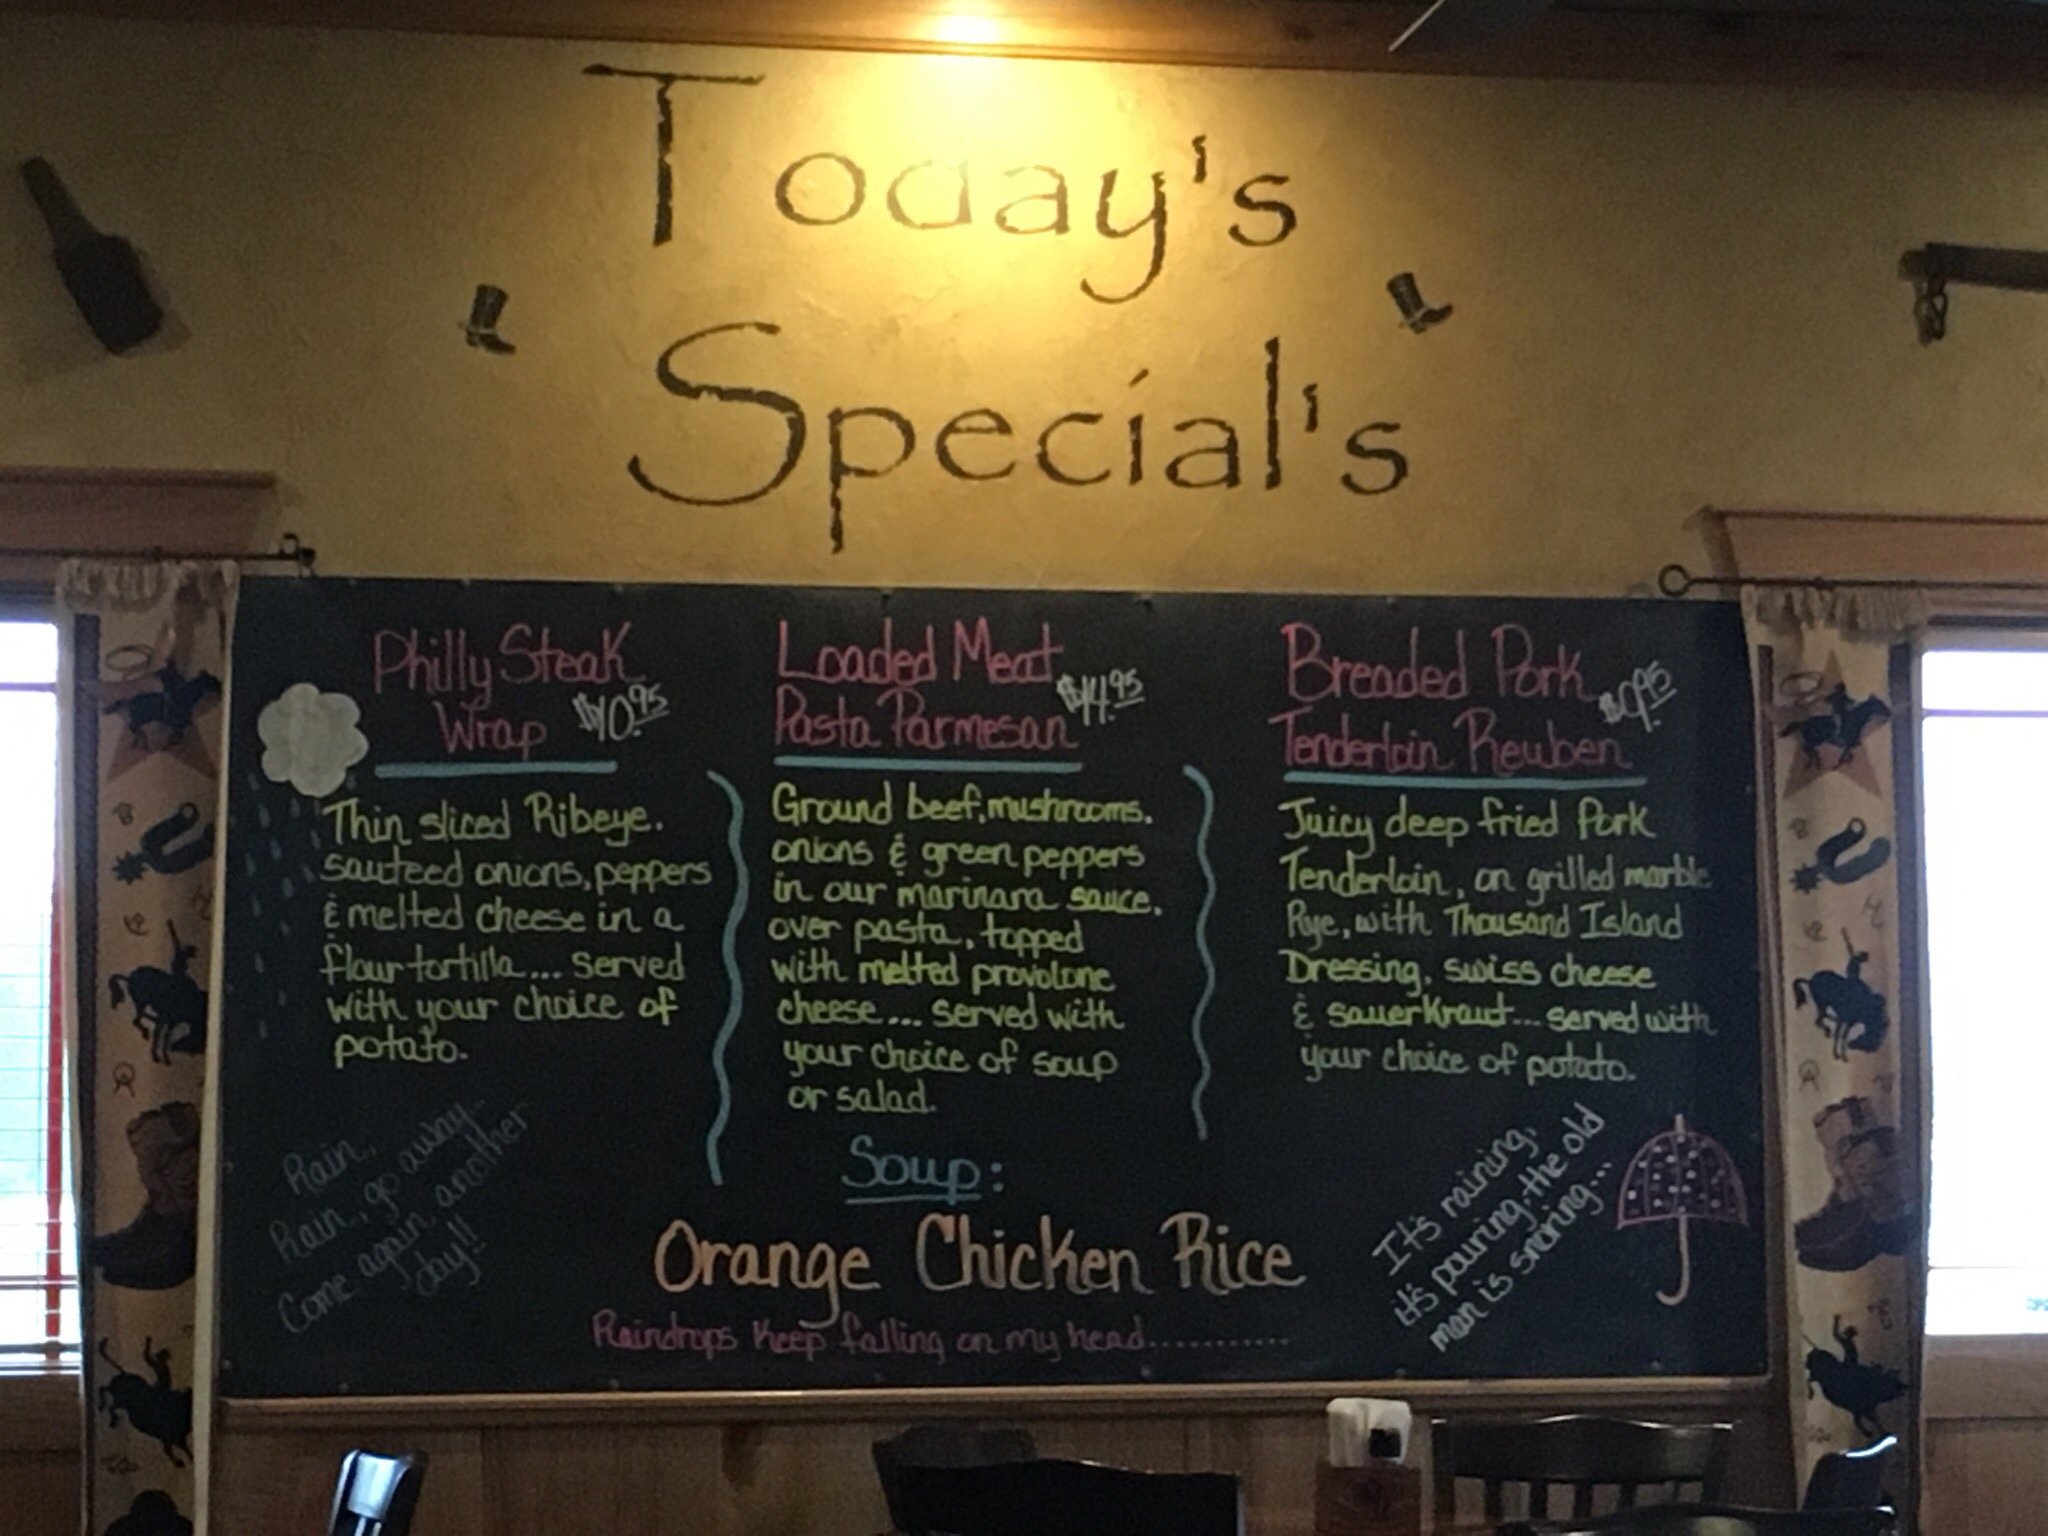 Today's
Special's
Philly Steak
Wrap $10.95
Thin sliced Ribeye.
sauteed onions, peppers
& melted cheese in a
flour tortilla... served
with your choice of
potato.
Loaded Meat
Pasta Parmesan $14.95
Ground beef, mushrooms.
onions & green peppers
in our marinara sauce.
over pasta, topped
with melted provolone
cheese... served with
your choice of soup
or salad.
Breaded Pork
Tenderloin Reuben $9.95
Juicy deep fried Pork
Tenderloin, on grilled marble
Rye, with Thousand Island
Dressing, swiss cheese
& sauerkraut... served with
your choice of potato.
Rain,
Rain, go away-
Come again another
day!!
Soup:
Orange Chicken Rice
Raindrops keep falling on my head............
It's raining,
it's pouring, the old
man is snoring...